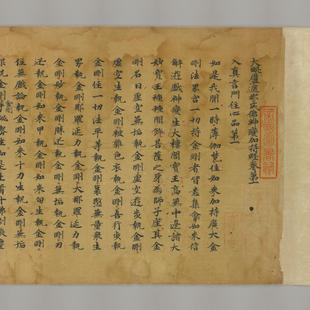 大毗盧遮那成佛神變加持經卷第一
入真言門住心品第一
如是我聞一時薄伽梵住如來加持廣大金
剛法界宮一切持金剛者皆悉集會如來信
解遊戲神變生大樓閣寶王高無中邊諸大
妙寶王種種間飾菩薩之身為師子座其金
剛名曰虛空無垢執金剛虛空遊步執金剛
虛空生執金剛被雜色衣執金剛善行步執
金剛住一切法平等執金剛哀愍無量眾生
界執金剛那羅延力執金剛大那羅延力執
金剛妙執金剛勝迅執金剛無垢執金剛刃
迅執金剛如來甲執金剛如來句生執金剛
住無戲論執金剛如來十力生執金剛無垢